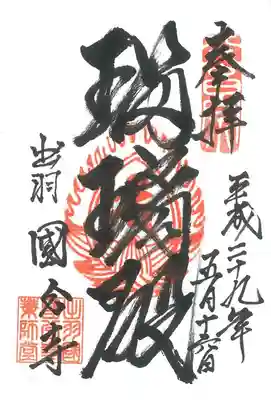 奉拝
平成二十九年
五月十六日
瑠璃殿
出羽 國分寺
出羽國
薬師堂